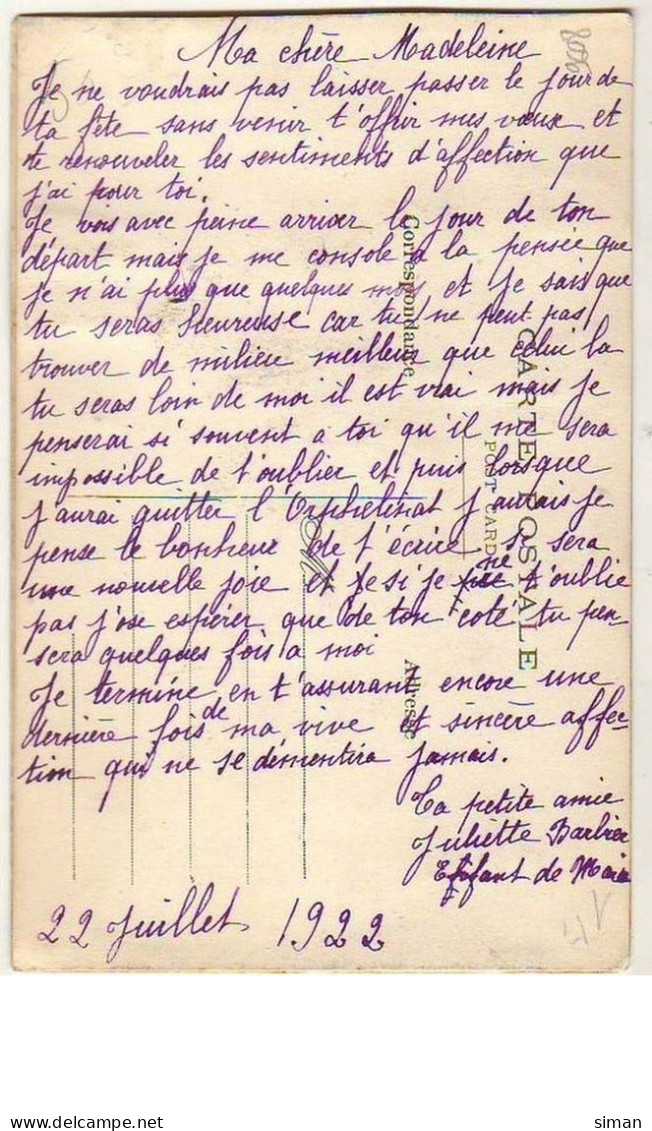 Ma chère Madeleine
Je ne voudrais pas laisser passer le jour de
ta fête sans venir t'offrir mes vœux et
te renouveler les sentiments d'affection que
j'ai pour toi.
Je vois avec peine arriver le jour de ton
départ mais je me console a la pensée que
je n'ai plus que quelques mois et je sais que
tu seras heureuse car tu ne peut pas
trouver de milieu meilleur que celui la
tu seras loin de moi il est vrai mais je
penserai si souvent a toi qu'il me sera
impossible de t'oublier et puis lorsque
j'aurai quitter l'Orphelinat j'aurais je
pense le bonheur de t'écrire, se sera
une nouvelle joie et si je ne t'oublie
pas j'ose espérer que de ton coté tu pen-
sera quelques fois a moi
Je termine en t'assurant encore une
dernière fois de ma vive et sincère affec-
tion qui ne se démentira jamais.
Ta petite amie
Juliette Barbier
Enfant de Marie
22 Juillet 1922
CARTE POSTALE
POST CARD
Correspondance
Adresse
siman